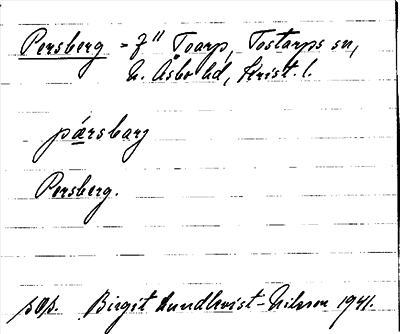 Persberg - f" Toarp, Tostarps sn,
N. Åsbo hd, Krist. l.
pærsbarj
Persberg.
sOp. Birgit Lundkvist-Nilsson 1941.